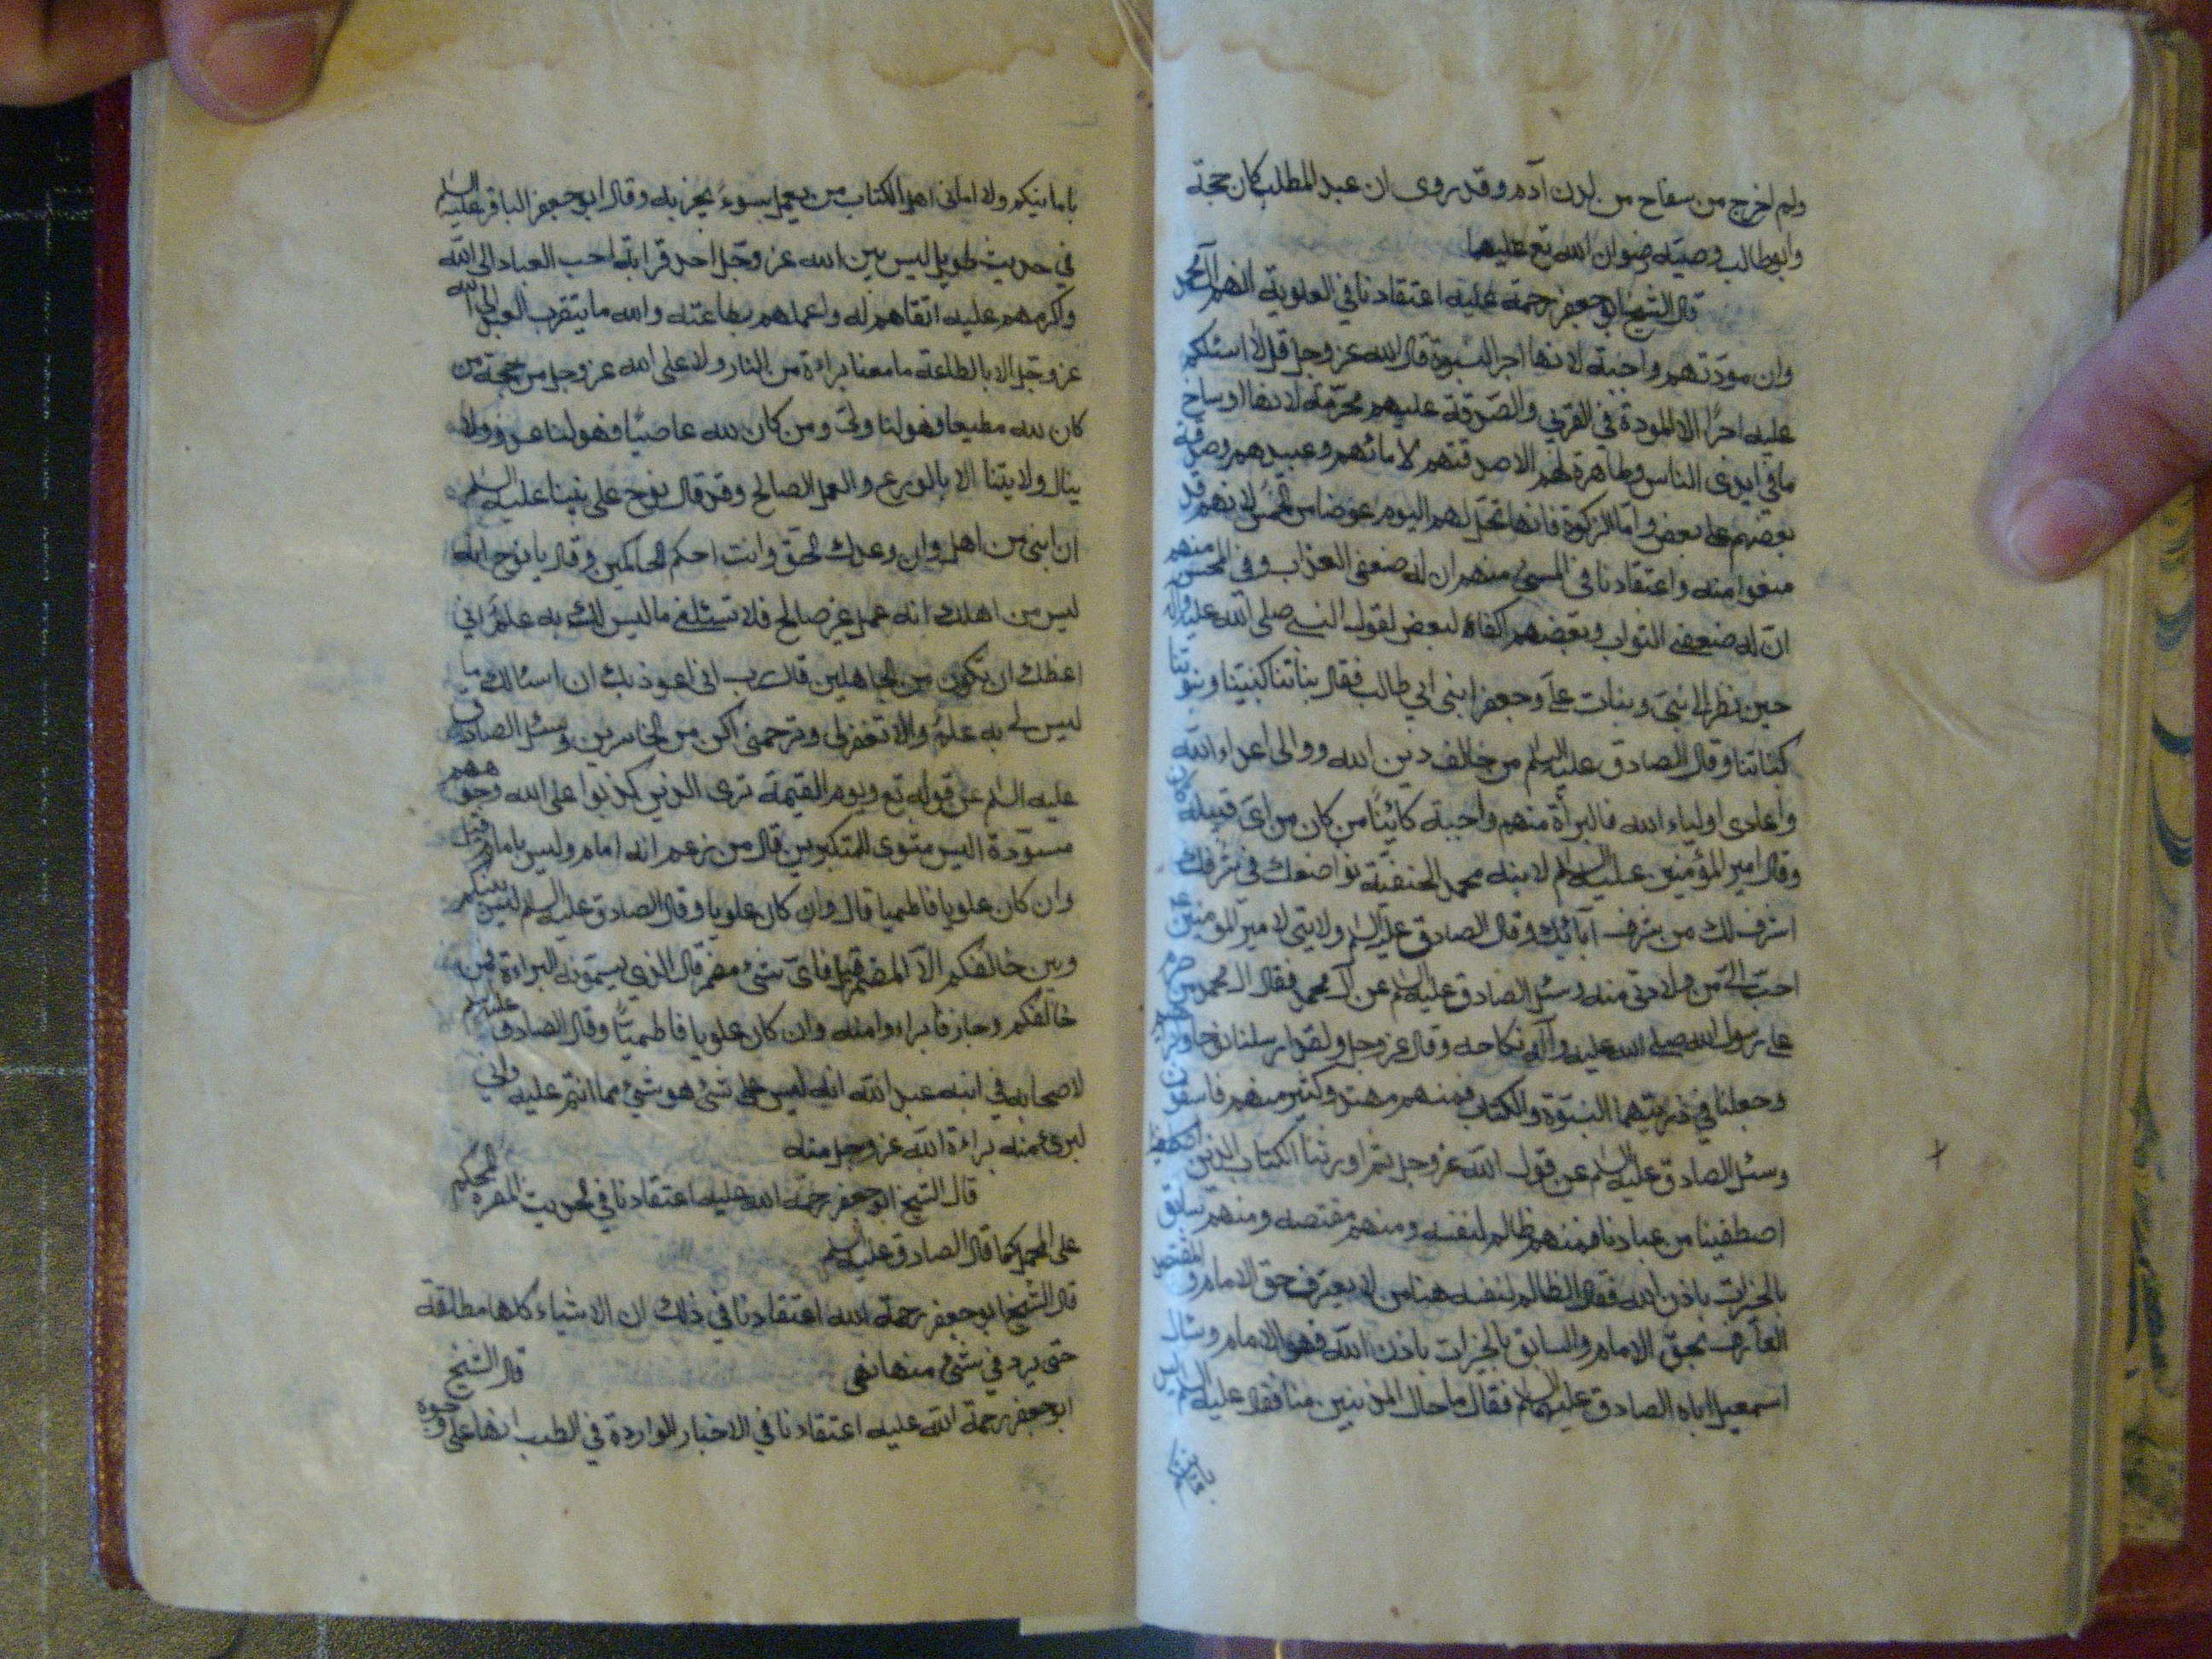 ولم اخرج من سفاح من لدن آدم وقد روى ان عبد المطلب كان حجة
وابو طالب وصيه رضوان الله تع عليهما
قال الشيخ ابو جعفر رحمة عليه اعتقادنا في العلوية انهم آل محمد
وان مودتهم واجبة لانها اجر النبوة قال الله عز وجل قل لا اسئلكم
عليه اجرا الا المودة في القربى والصدقة عليهم محرمة لانها اوساخ
ما في ايدى الناس وطاهرة لهم الا صدقتهم لامائهم وعبيدهم وصدقة
بعضهم على بعض واما الزكوة فانها تحل لهم اليوم عوضا من الخمس لانهم قد
منعوا منه واعتقادنا في المسئ منهم ان له ضعفى العذاب وفي المحسن منهم
ان له ضعفى الثواب وبعضهم اكفاء لبعض لقول النبي صلى الله عليه واله
حين نظر الى بني وبنات على وجعفر ابنى ابي طالب فقال بناتنا كبنينا وبنوتنا
كبناتنا وقال الصادق عليه السلم من خالف دين الله ووالى اعداء الله
واعادى اولياء الله فالبرأة منهم واجبة كائنا من كان من اى قبيلة كان
وقال امير المؤمنين عليه السلم لابنه محمد الحنفية تواضعك في شرفك
اشرف لك من شرف آبائك وقال الصادق عليه السلم ولايتى لامير المؤمنين
احب الى من ولادتى منه وسئل الصادق عليه السلم عن آل محمد فقال آل محمد من حرم
على رسول الله صلى الله عليه وآله نكاحه وقال عز وجل ولقد ارسلنا نوحا وابرهيم
وجعلنا في ذريتهما النبوة والكتاب فمنهم مهتد وكثير منهم فاسقون
وسئل الصادق عليه السلم عن قول الله عز وجل ثم اورثنا الكتاب الذين اصطفينا
اصطفينا من عبادنا فمنهم ظالم لنفسه ومنهم مقتصد ومنهم سابق
بالخيرات باذن الله فقال الظالم لنفسه هنا من لا يعترف حق الامام والمقتصد
العارف بحق الامام والسابق بالخيرات باذن الله فهو الامام وسئال
اسمعيل اباه الصادق عليه السلم فقال ما حال المذنبين منا فقال عليه السلم ليس
بامانيكم
بامانيكم ولا امانى اهل الكتاب من يعمل سوء يجز به وقال ابو جعفر الباقر عليه السلم
في حديث طويل ليس بين الله عز وجل احد قرابة احب العباد الى الله
واكرمهم عليه اتقاهم له واعملهم بطاعته والله ما يتقرب العبد الى الله
عز وجل الا بالطاعة ما معنا براءة من النار ولا على الله عز وجل من حجة من
كان لله مطيعا فهو لنا ولى ومن كان لله عاصيا فهو لنا عدو ولا
ينال ولايتنا الا بالورع والعمل الصالح وقد قال نوح على نبينا عليه السلم
ان ابنى من اهلى وان وعدك الحق وانت احكم الحاكمين وقال يا نوح انه
ليس من اهلك انه عمل غير صالح فلا تسئلنى ما ليس لك به علم انى
اعظك ان تكون من الجاهلين قال رب انى اعوذ بك ان اسئالك ما
ليس لى به علم والا تغفر لى وترحمنى اكن من الخاسرين وسئل الصادق
عليه السلم عن قوله تع ويوم القيمة ترى الذين كذبوا على الله وجوههم
مسودة اليس مثوى للمتكبرين قال من زعم انه امام وليس بامام قيل
وان كان علويا فاطميا قال وان كان علويا وقال الصادق عليه السلم ليس بينكم
وبين خالفكم الا المضمر قيل فاى شئ مضمر قال الذى يسمونه البراءة فمن
خالفكم وجاز فابراءوا منه وان كان علويا فاطميا وقال الصادق عليه السلم
لاصحابه في ابنه عبد الله انه ليس على شئ هو شئ مما انتم عليه وانى
لبرئ منه براءة الله عز وجل منه
قال الشيخ ابو جعفر رحمة الله عليه اعتقادنا في الحديث المفسر انه يحكم
على المجمل كما قال الصادق عليه السلم
قال الشيخ ابو جعفر رحمة الله اعتقادنا في ذلك ان الاشياء كلها مطلقة
حتى يرد في شئ منها نهى قال الشيخ
ابو جعفر رحمة الله عليه اعتقادنا في الاخبار الواردة في الطب انها على وجوه